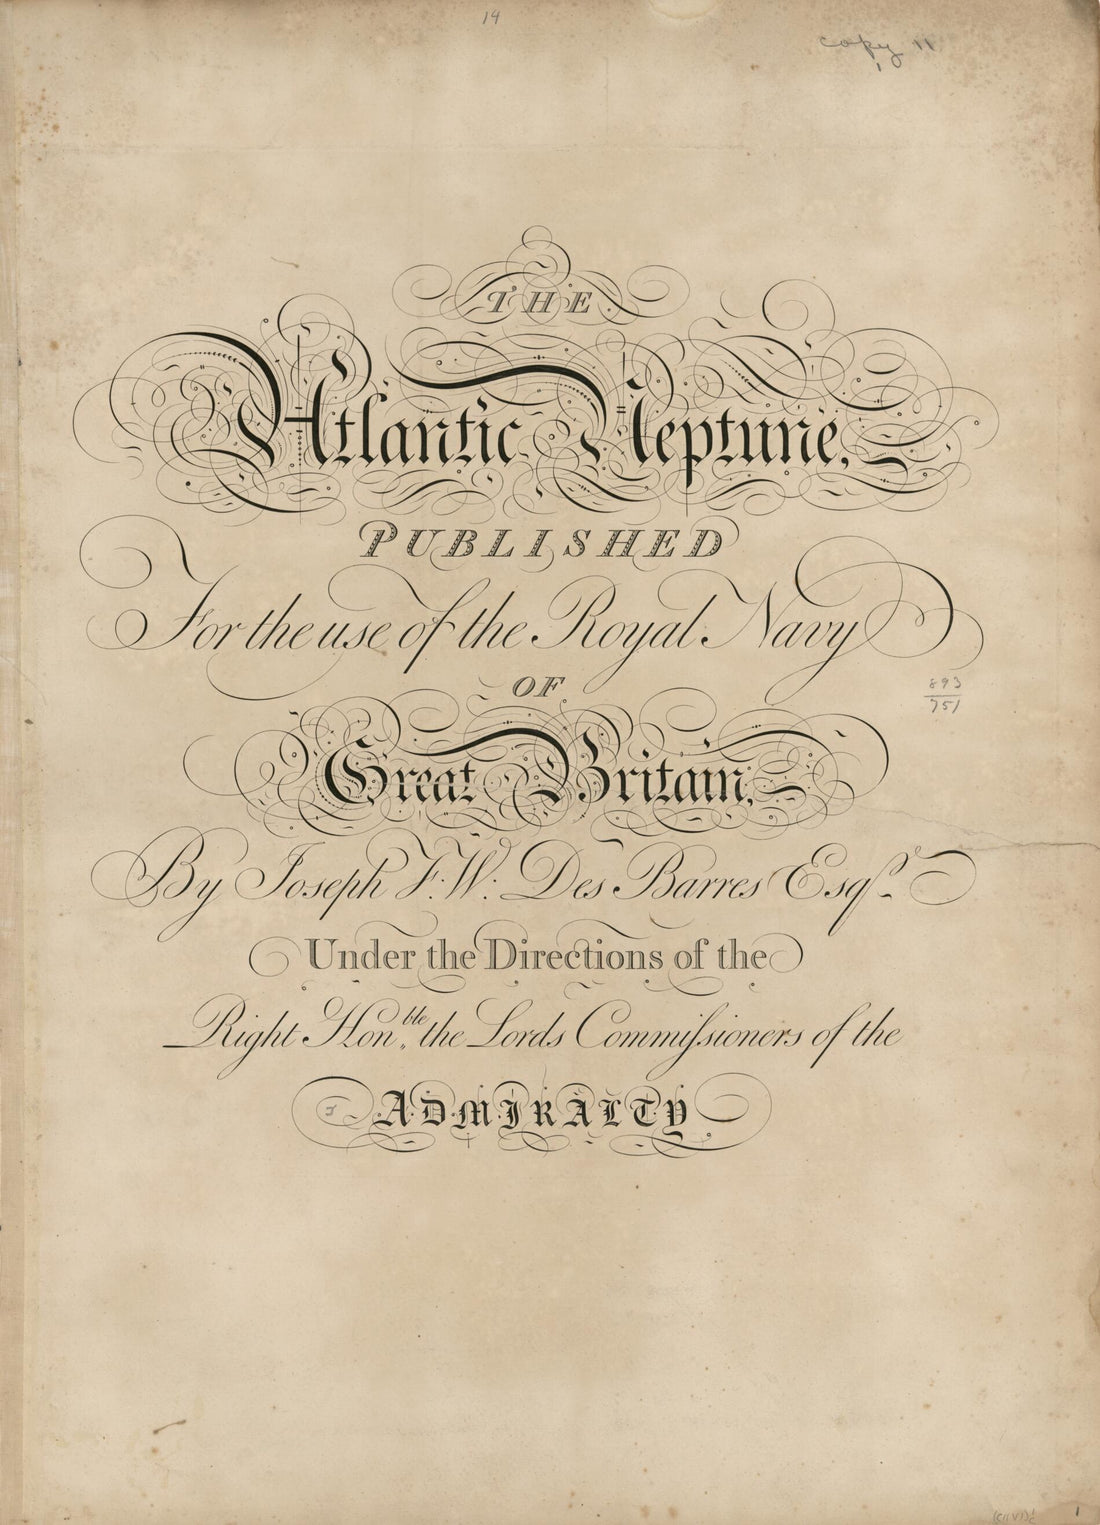 14
copy 11
THE
Atlantic Neptune,
PUBLISHED
For the use of the Royal Navy
OF
893
751
Great Britain,
By Joseph F. W. Des Barres Esqr.
Under the Directions of the
Right Honble. the Lords Commiſsioners of the
ADMIRALTY
1